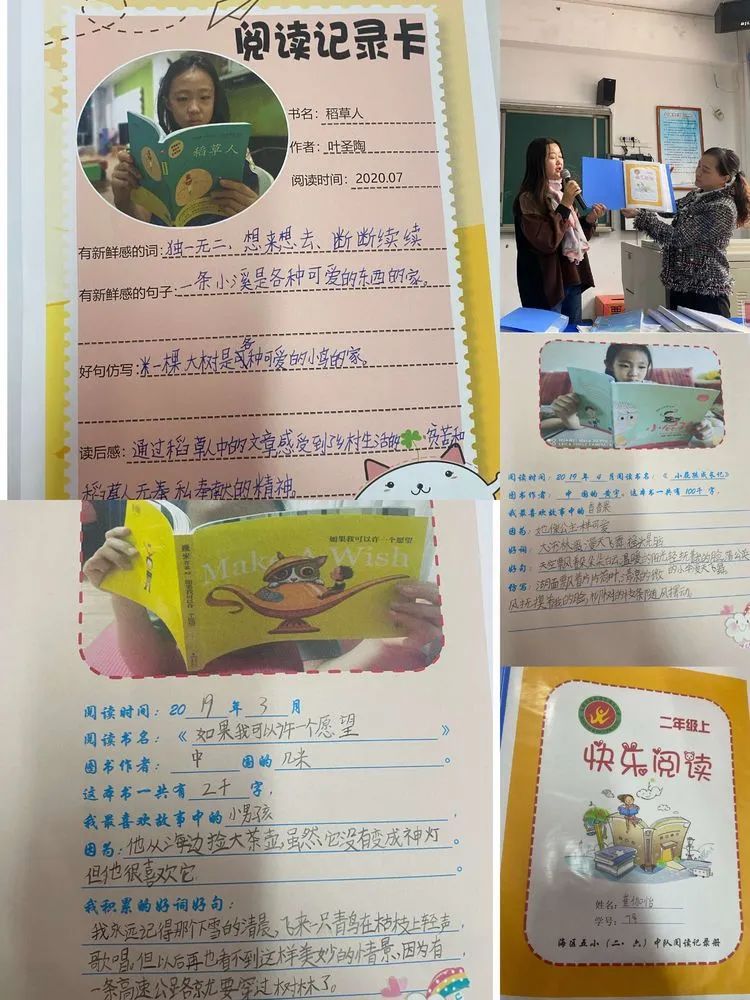 阅读记录卡
稻草人
书名：稻草人
作者：叶圣陶
阅读时间：2020.07
有新鲜感的词：独一无二、想来想去、断断续续
有新鲜感的句子：一条小溪是各种可爱的东西的家。
好句仿写：一棵大树是各种可爱的小鸟的家。
读后感：通过稻草人中的文章感受到乡村生活的贫苦和
稻草人无奉私奉献的精神。
阅读时间：2019年4月阅读书名：《小屁孩成长记》
图书作者：中国的黄宇。这本书一共有100千字，
我最喜欢故事中的
因为：她像公主一样可爱
好词：
好句：天空飘
仿写：湖面飘着片片荷叶，清凉的微
风抚摸着
如果我可以许一个愿望
Make A Wish
阅读时间：2019年3月
阅读书名：《如果我可以许一个愿望》
图书作者：中国的几米。
这本书一共有2千字，
我最喜欢故事中的小男孩，
因为：他从海边捡大茶壶，虽然它没有变成神灯
但他很喜欢它。
我积累的好词好句：
我永远记得那个下雪的清晨，飞来一只青鸟在枯枝上轻声
歌唱。但以后再也看不到这样美妙的情景，因为有
一条高速公路各就要穿过树林了。
二年级上
快乐阅读
姓名：
学号：
海区五小（二、六）中队阅读记录册